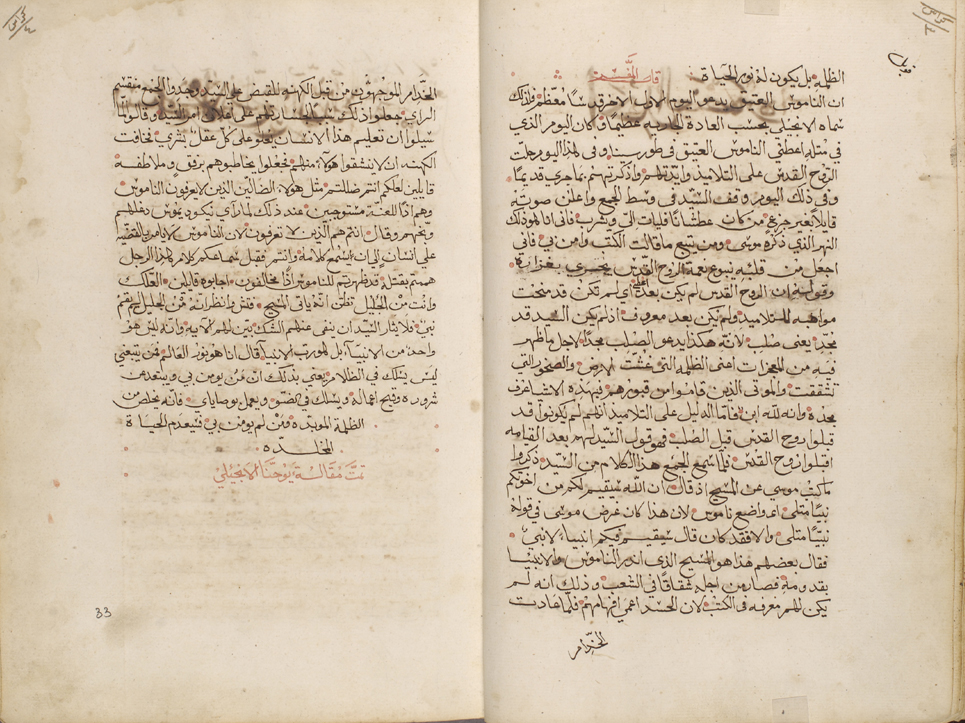 الظلمة بل يكون له نور الحياة قال المفسر
ان الناموس العتيق يدعو اليوم الاخر قدسا معظم ولذلك
سماه الانجيلي بحسب العادة الجارية عظيما وكان اليوم الذي
في مثله اعطي الناموس العتيق في طور سينا وفي هذا اليوم حلت
الروح القدس على التلاميذ وايدتهم واذكرتهم بما جرى قديما
وفي ذلك اليوم وقف السيد في وسط الجمع واعلن صوته
قايلا بغير جزع من كان عطشانا فليات الي ويشرب فاني انا هو ذلك
النهر الذي ذكره موسى ومن يتبع ما قالت الكتب وامن بي فاني
اجعل من قلبه ينبوع نعمة الروح القدس يجري بغزارة
وقوله ان الروح القدس لم يكن بعد اعطي اي لم تكن قد منحت
مواهبه للتلاميذ ولم يكن بعد معروف اذ لم يكن السيد قد
مجد يعني صلب لانه هكذا يدعو الصلب مجدا لاجل ما ظهر
فيه من المعجزات اعني الظلمة التي غشت الارض والصخور التي
تشققت والموتى الذين قاموا من قبورهم فبهذه الاشيا عرف
مجده وانه لله ابن فاما الدليل على التلاميذ انهم لم يكونوا قد
قبلوا روح القدس قبل الصلب فهو قول السيد لهم بعد القيامه
اقبلوا روح القدس فلما سمع الجمع هذا الكلام من السيد ذكروا
ما كتب موسى عن المسيح اذ قال ان الله سيقيم لكم من اخوتكم
نبيا مثلي اي واضع ناموس لان هذا كان غرض موسى في قوله
نبيا مثلي والا فقد كان قال سيقيم فيكم انبيا لا نبي
فقال بعضهم هذا هو المسيح الذي انذر الناموس والانبيا
بقدومه فصار من اجله شقاقا في الشعب وذلك انه لم
يكن لهم معرفه في الكتب لان الحسد اعمى افهامهم فلما عادت
الخدام
الخدام الموجهون من قبل الكهنه للقبض على السيد وجدوا الجمع منقسم
الراي جعلوا ذلك سبب لخسارتهم على اغلاق امر السيد وقالوا لما
سيلوا ان تعليم هذا الانسان يعلو على كل عقل بشري فخافت
الكهنه ان لا ينشقوا هولاء منهم فجعلوا يخاطبوهم برفق وملاطفه
قايلين لعلكم انتم ضللتم مثل هولاء الضالين الذين لا يعرفون الناموس
وهم اذا للعنة مستوجبين عند ذلك لما راى نيقوديموس دغلهم
وبخهم وقال انتم هم الذين لا تعرفون لان الناموس لا يامر بالقضيه
على انسان الى ان يستمع كلامه وانتم فقبل سماعكم كلام هذا الرجل
هممتم بقتله قد ظهرتم للناموس اذا مخالفون اجابوه قايلين العلك
وانت من الجليل تظن ان ذا ياتي المسيح فتش وانظر انه من الجليل لم يقم
نبي فلما اثار السيد ان ينفي عنهم الشك بين لهم الايه وانه ليس هو
واحد من الانبيا بل هو رب الانبيا قال انا هو نور العالم فمن يتبعني
ليس يسلك في الظلام يعني بذلك ان من يومن بي ويبتعد عن
شروره وقبح اعماله ويسلك في الضو ويعمل بوصاياي فانه مخلص من
الظلمة الموبده ومن لم يومن بي فسيعدم الحياة
المخلده
تمت مقالة يوحنا الانجيلي
33